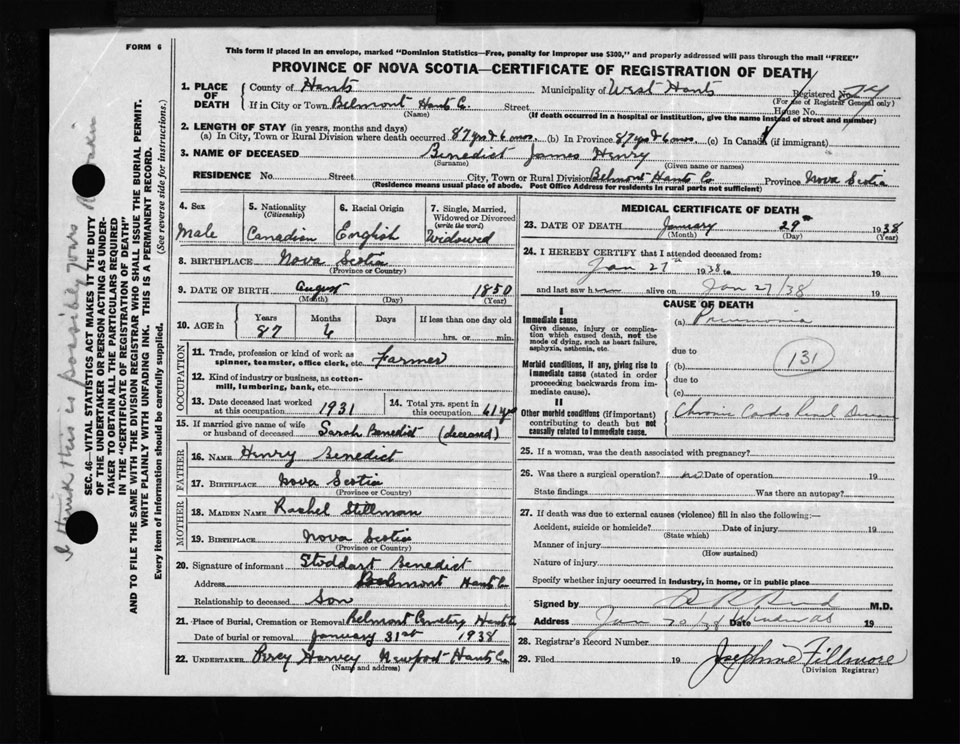 FORM 6
This form if placed in an envelope, marked "Dominion Statistics—Free, penalty for improper use $300," and properly addressed will pass through the mail "FREE"
PROVINCE OF NOVA SCOTIA—CERTIFICATE OF REGISTRATION OF DEATH
1. PLACE OF DEATH County of Hants Municipality of West Hants Registered No.
(For use of Registrar General only)
If in City or Town Belmont Hants Co. Street House No.
(Name) (If death occurred in a hospital or institution, give the name instead of street and number)
2. LENGTH OF STAY (in years, months and days)
(a) In City, Town or Rural Division where death occurred 87 yrs & 6 mos. (b) In Province 87 yrs & 6 mos. (c) In Canada (if immigrant)
3. NAME OF DECEASED Benedict James Henry
(Surname) (Given name or names)
RESIDENCE No. Street City, Town or Rural Division Belmont Hants Co Province Nova Scotia
(Residence means usual place of abode. Post Office Address for residents in rural parts not sufficient)
4. Sex 5. Nationality (Citizenship) 6. Racial Origin 7. Single, Married, Widowed or Divorced (write the word)
Male Canadian English Widowed
8. BIRTHPLACE Nova Scotia
(Province or Country)
9. DATE OF BIRTH August 1850
(Month) (Day) (Year)
10. AGE in Years Months Days If less than one day old
87 6 hrs. or min.
OCCUPATION
11. Trade, profession or kind of work as spinner, teamster, office clerk, etc. Farmer
12. Kind of industry or business, as cotton-mill, lumbering, bank, etc.
13. Date deceased last worked at this occupation 1931 14. Total yrs. spent in this occupation 61 yrs
15. If married give name of wife or husband of deceased Sarah Benedict (deceased)
FATHER
16. NAME Henry Benedict
17. BIRTHPLACE Nova Scotia
(Province or Country)
MOTHER
18. MAIDEN NAME Rachel Stillman
19. BIRTHPLACE Nova Scotia
(Province or Country)
20. Signature of informant Stoddart Benedict
Address Belmont Hants Co
Relationship to deceased Son
21. Place of Burial, Cremation or Removal Belmont Cemetery Hants Co
Date of burial or removal January 31st 1938
22. UNDERTAKER Percy Harvey Newport Hants Co.
(Name and address)
MEDICAL CERTIFICATE OF DEATH
23. DATE OF DEATH January 29th 1938
(Month) (Day) (Year)
24. I HEREBY CERTIFY that I attended deceased from:
Jan 27th 1938 to 19
and last saw h alive on Jan 27/38 19
CAUSE OF DEATH
I
Immediate cause (a) Pneumonia
Give disease, injury or complication which caused death, not the mode of dying, such as heart failure, asphyxia, asthenia, etc.
due to
131
Morbid conditions, if any, giving rise to immediate cause (stated in order proceeding backwards from immediate cause).
(b)
due to
(c)
II
Other morbid conditions (if important) contributing to death but not causally related to immediate cause. Chronic Cardio Renal Disease
25. If a woman, was the death associated with pregnancy?
26. Was there a surgical operation? no Date of operation 19
State findings Was there an autopsy?
27. If death was due to external causes (violence) fill in also the following:—
Accident, suicide or homicide? Date of injury 19
(State which)
Manner of injury
(How sustained)
Nature of injury
Specify whether injury occurred in industry, in home, or in public place
Signed by M.D.
Address Date 19
28. Registrar's Record Number
29. Filed 19 Josephine Fillmore
(Division Registrar)
SEC. 46—VITAL STATISTICS ACT MAKES IT THE DUTY OF THE UNDERTAKER OR PERSON ACTING AS UNDERTAKER TO OBTAIN ALL THE PARTICULARS REQUIRED IN THE "CERTIFICATE OF REGISTRATION OF DEATH" AND TO FILE THE SAME WITH THE DIVISION REGISTRAR WHO SHALL ISSUE THE BURIAL PERMIT.
WRITE PLAINLY WITH UNFADING INK. THIS IS A PERMANENT RECORD.
Every item of information should be carefully supplied. (See reverse side for instructions.)
I think this is possibly yours